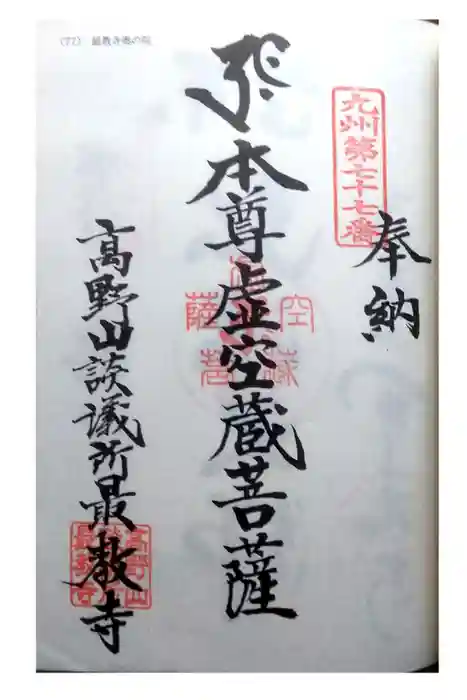 (77) 最教寺奥の院
九州第七十七番
奉納
本尊虚空蔵菩薩
虚空蔵菩薩
高野山談議所最教寺